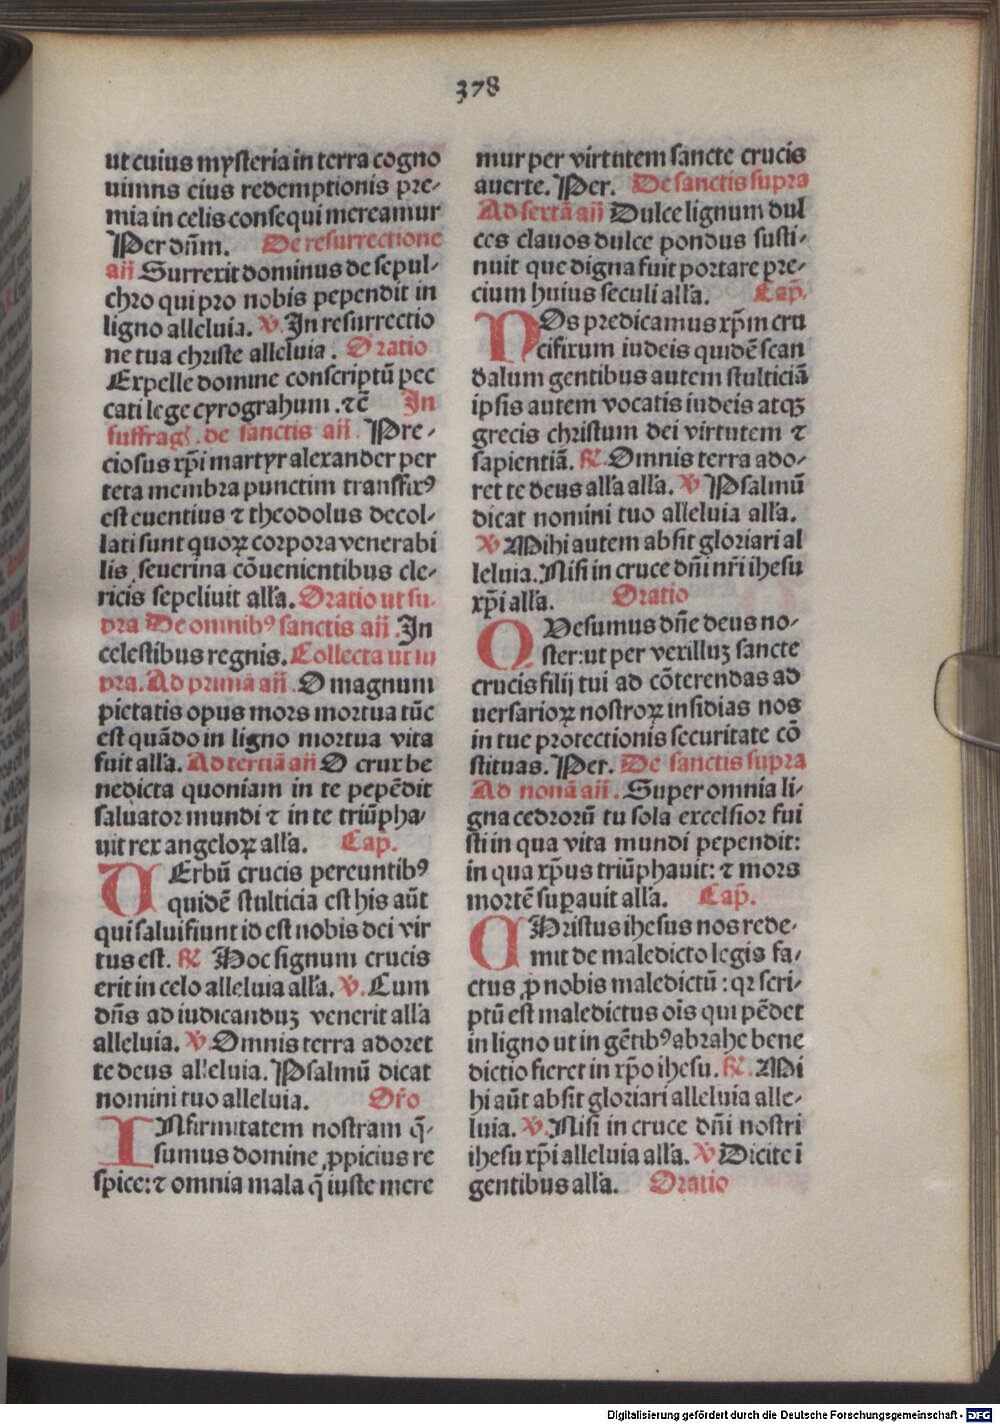 378
ut cuius mysteria in terra cogno
uimus eius redemptionis pre-
mia in celis consequi mereamur
Per dñm. De resurrectione
añ Surrexit dominus de sepul-
chro qui pro nobis pependit in
ligno alleluia. ℣. In resurrectio
ne tua christe alleluia. Oratio
Expelle domine conscriptũ pec
cati lege cyrograhum. ⁊c̃ In
suffrag̃. de sanctis añ. Pre-
ciosus xp̃i martyr alexander per
teta membra punctim transfixꝰ
est euentius ⁊ theodolus decol-
lati sunt quoꝝ corpora venerabi
lis seuerina cõuenientibus cle-
ricis sepeliuit alľa. Oratio ut su-
pra De omnibꝰ sanctis añ. In
celestibus regnis. Collecta ut su
pra. Ad primã añ. O magnum
pietatis opus mors mortua tũc
est quãdo in ligno mortua vita
fuit alľa. Ad tertiã añ O crux be
nedicta quoniam in te pepẽdit
saluator mundi ⁊ in te triũpha-
uit rex angeloꝝ alľa. Cap̃.
VErbũ crucis pereuntibꝰ
quidẽ stulticia est his aũt
qui salui fiunt id est nobis dei vir
tus est. ℟ Hoc signum crucis
erit in celo alleluia alľa. ℣. Cum
dñs ad iudicanduʒ venerit alľa
alleluia. ℣. Omnis terra adoret
te deus alleluia. Psalmũ dicat
nomini tuo alleluia. Or̃o
INfirmitatem nostram q̃-
sumus domine ꝓpicius re
spice: ⁊ omnia mala q̃ iuste mere
mur per virtutem sancte crucis
auerte. Per. De sanctis supra
Ad sextã añ Dulce lignum dul
ces clauos dulce pondus susti-
nuit que digna fuit portare pre-
cium huius seculi alľa. Cap̃.
NOs predicamus xp̃m cru
cifixum iudeis quidẽ scan
dalum gentibus autem stulticiã
ipsis autem vocatis iudeis atqꝫ
grecis christum dei virtutem ⁊
sapientiã. ℟. Omnis terra ado-
ret te deus alľa alľa. ℣ Psalmũ
dicat nomini tuo alleluia alľa.
℣ Mihi autem absit gloriari al
leluia. Nisi in cruce dñi nr̃i ihesu
xp̃i alľa. Oratio
QVesumus dñe deus no-
ster: ut per vexilluʒ sancte
crucis filij tui ad cõterendas ad
uersarioꝝ nostroꝝ insidias nos
in tue protectionis securitate cõ
stituas. Per. De sanctis supra
Ad nonã añ. Super omnia li-
gna cedrorũ tu sola excelsior fui
sti in qua vita mundi pependit:
in qua xp̃us triũphauit: ⁊ mors
mortẽ suꝑauit alľa. Cap̃.
CHristus ihesus nos rede-
mit de maledicto legis fa-
ctus ꝓ nobis maledictũ: qꝛ scri-
ptũ est maledictus oĩs qui pẽdet
in ligno ut in gẽtibꝰ abrahe bene
dictio fieret in xp̃o ihesu. ℟. Mi
hi aũt absit gloriari alleluia alle-
luia. ℣. Nisi in cruce dñi nostri
ihesu xp̃i alleluia alľa. ℣ Dicite ĩ
gentibus alľa. Oratio
Digitalisierung gefördert durch die Deutsche Forschungsgemeinschaft - DFG